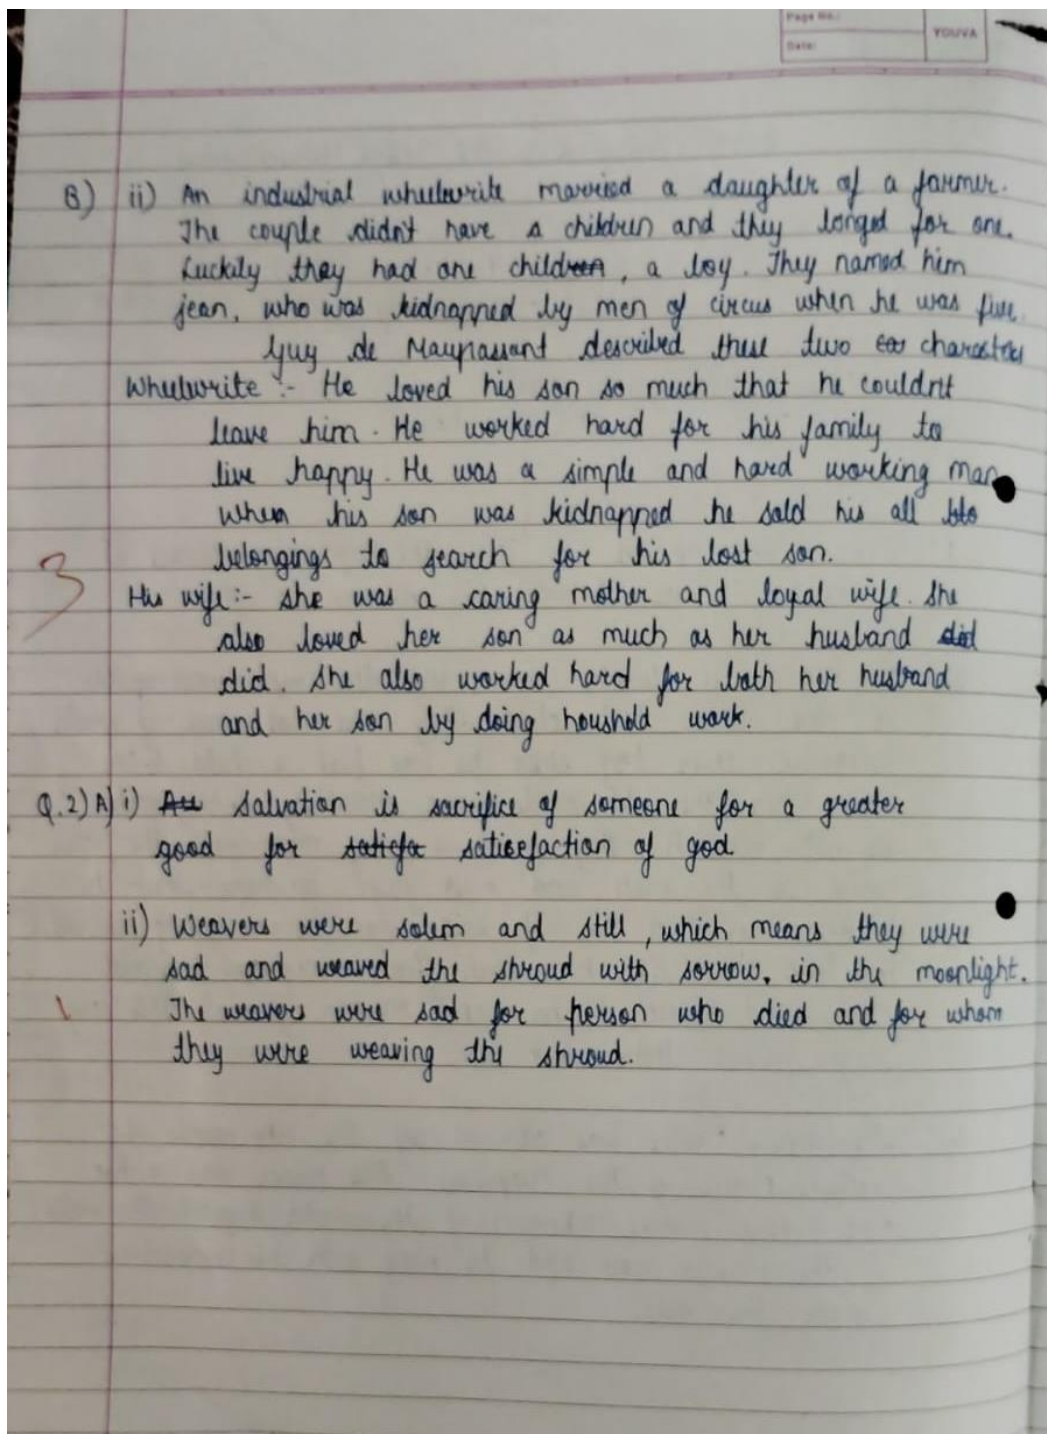 Page No.:
Date:
YOUVA
B) ii) An industrial wheelwrite married a daughter of a farmer.
The couple didn't have a children and they longed for one.
Luckily they had one children, a boy. They named him
jean, who was kidnapped by men of circus when he was five.
Guy de Maupassant described these two cas characters
Wheelwrite :- He loved his son so much that he couldn't
leave him. He worked hard for his family to
live happy. He was a simple and hard working man
when his son was kidnapped he sold his all blo
belongings to search for his lost son.
3
His wife :- she was a caring mother and loyal wife. She
also loved her son as much as her husband did
did. She also worked hard for both her husband
and her son by doing houshold work.
Q.2) A) i) All Salvation is sacrifice of someone for a greater
good for satisfa satisefaction of god
ii) Weavers were solem and still, which means they were
sad and weaved the shroud with sorrow, in the moonlight.
1
The weavers were sad for person who died and for whom
they were weaving the shroud.